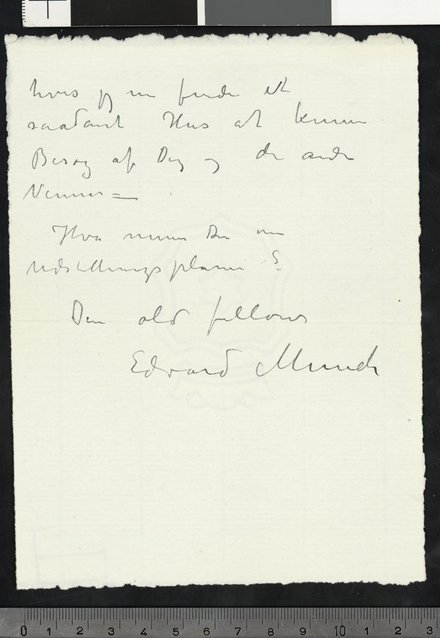 hvis jeg nu finder et
saadant Hus at kunne
Besøg af Dig og de andre
Venner –
Hva mener Du om
Udstillingsplanen?
Din old fellows
Edvard Munch
0 1 2 3 4 5 6 7 8 9 10 1 2 3